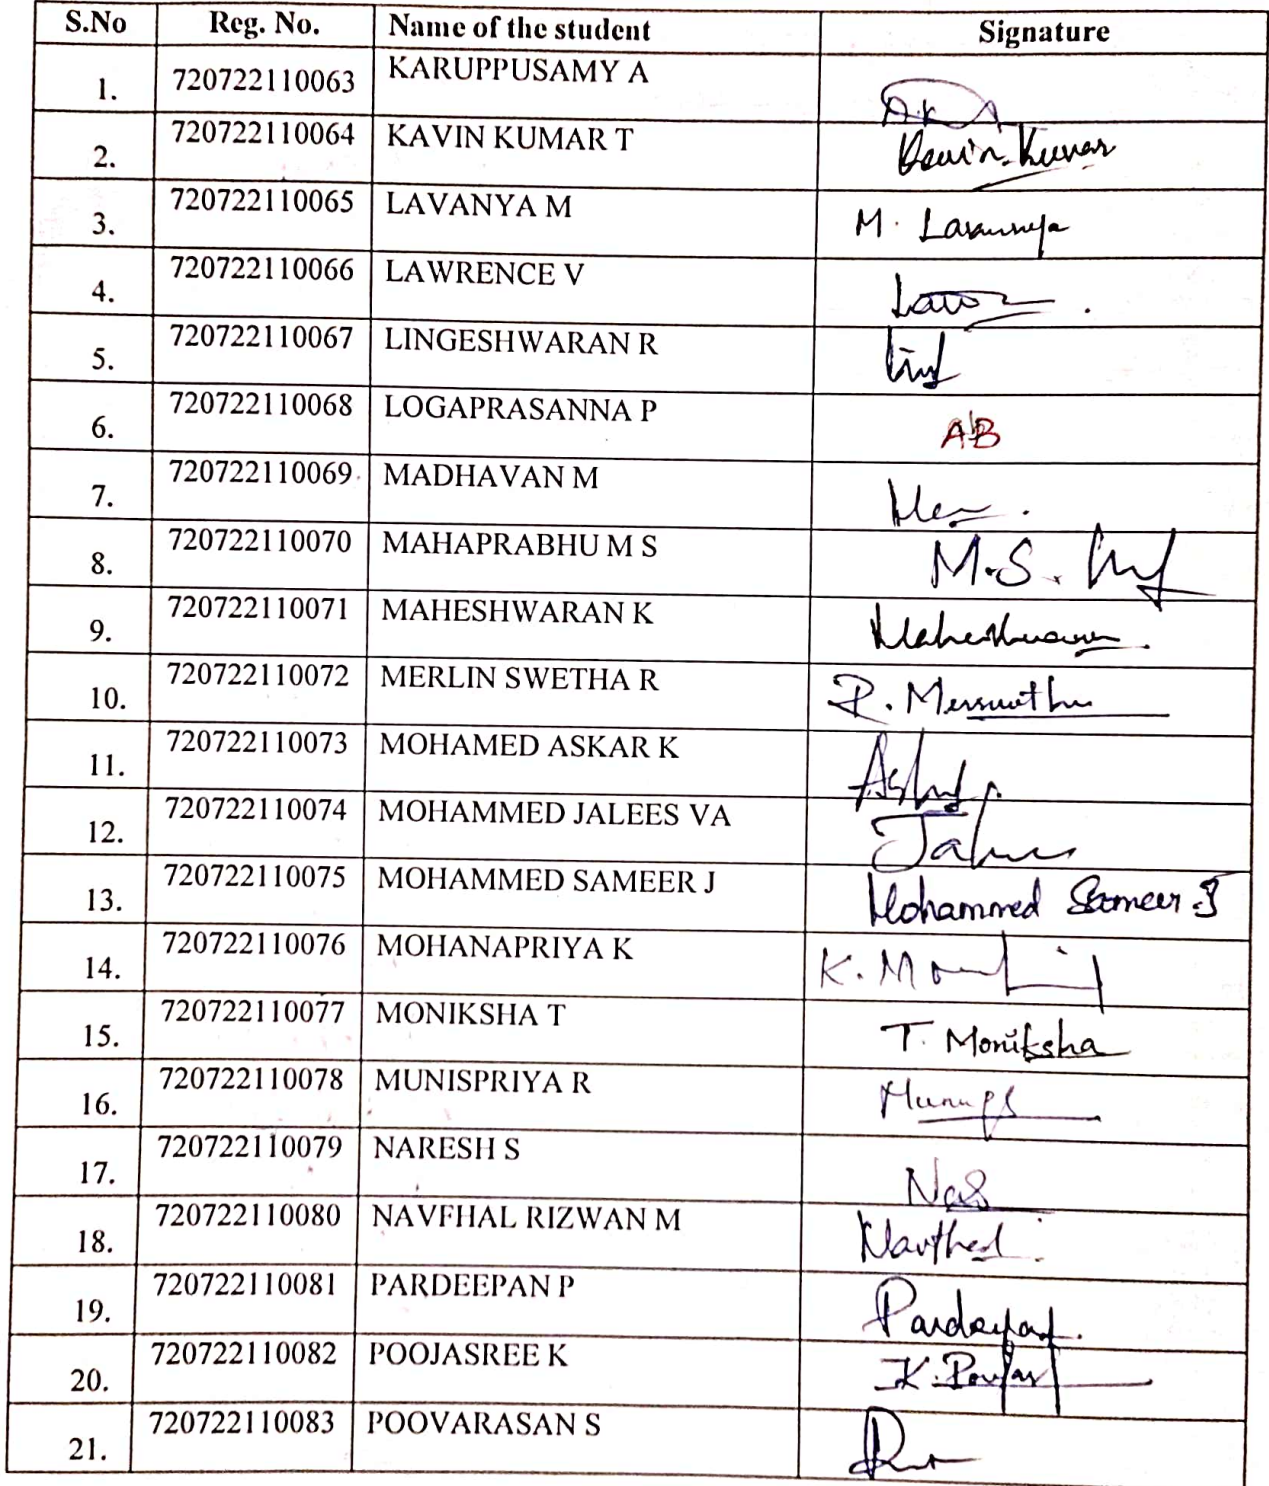 S.No Reg. No. Name of the student Signature
1. 720722110063 KARUPPUSAMY A
2. 720722110064 KAVIN KUMAR T Kavin Kumar
3. 720722110065 LAVANYA M M. Lavannya
4. 720722110066 LAWRENCE V
5. 720722110067 LINGESHWARAN R
6. 720722110068 LOGAPRASANNA P AB
7. 720722110069 MADHAVAN M
8. 720722110070 MAHAPRABHU M S M.S.
9. 720722110071 MAHESHWARAN K Maheshwaran
10. 720722110072 MERLIN SWETHA R R.
11. 720722110073 MOHAMED ASKAR K
12. 720722110074 MOHAMMED JALEES VA
13. 720722110075 MOHAMMED SAMEER J Mohammed Sameer.J
14. 720722110076 MOHANAPRIYA K K.
15. 720722110077 MONIKSHA T T. Moniksha
16. 720722110078 MUNISPRIYA R
17. 720722110079 NARESH S
18. 720722110080 NAVFHAL RIZWAN M
19. 720722110081 PARDEEPAN P
20. 720722110082 POOJASREE K K.
21. 720722110083 POOVARASAN S